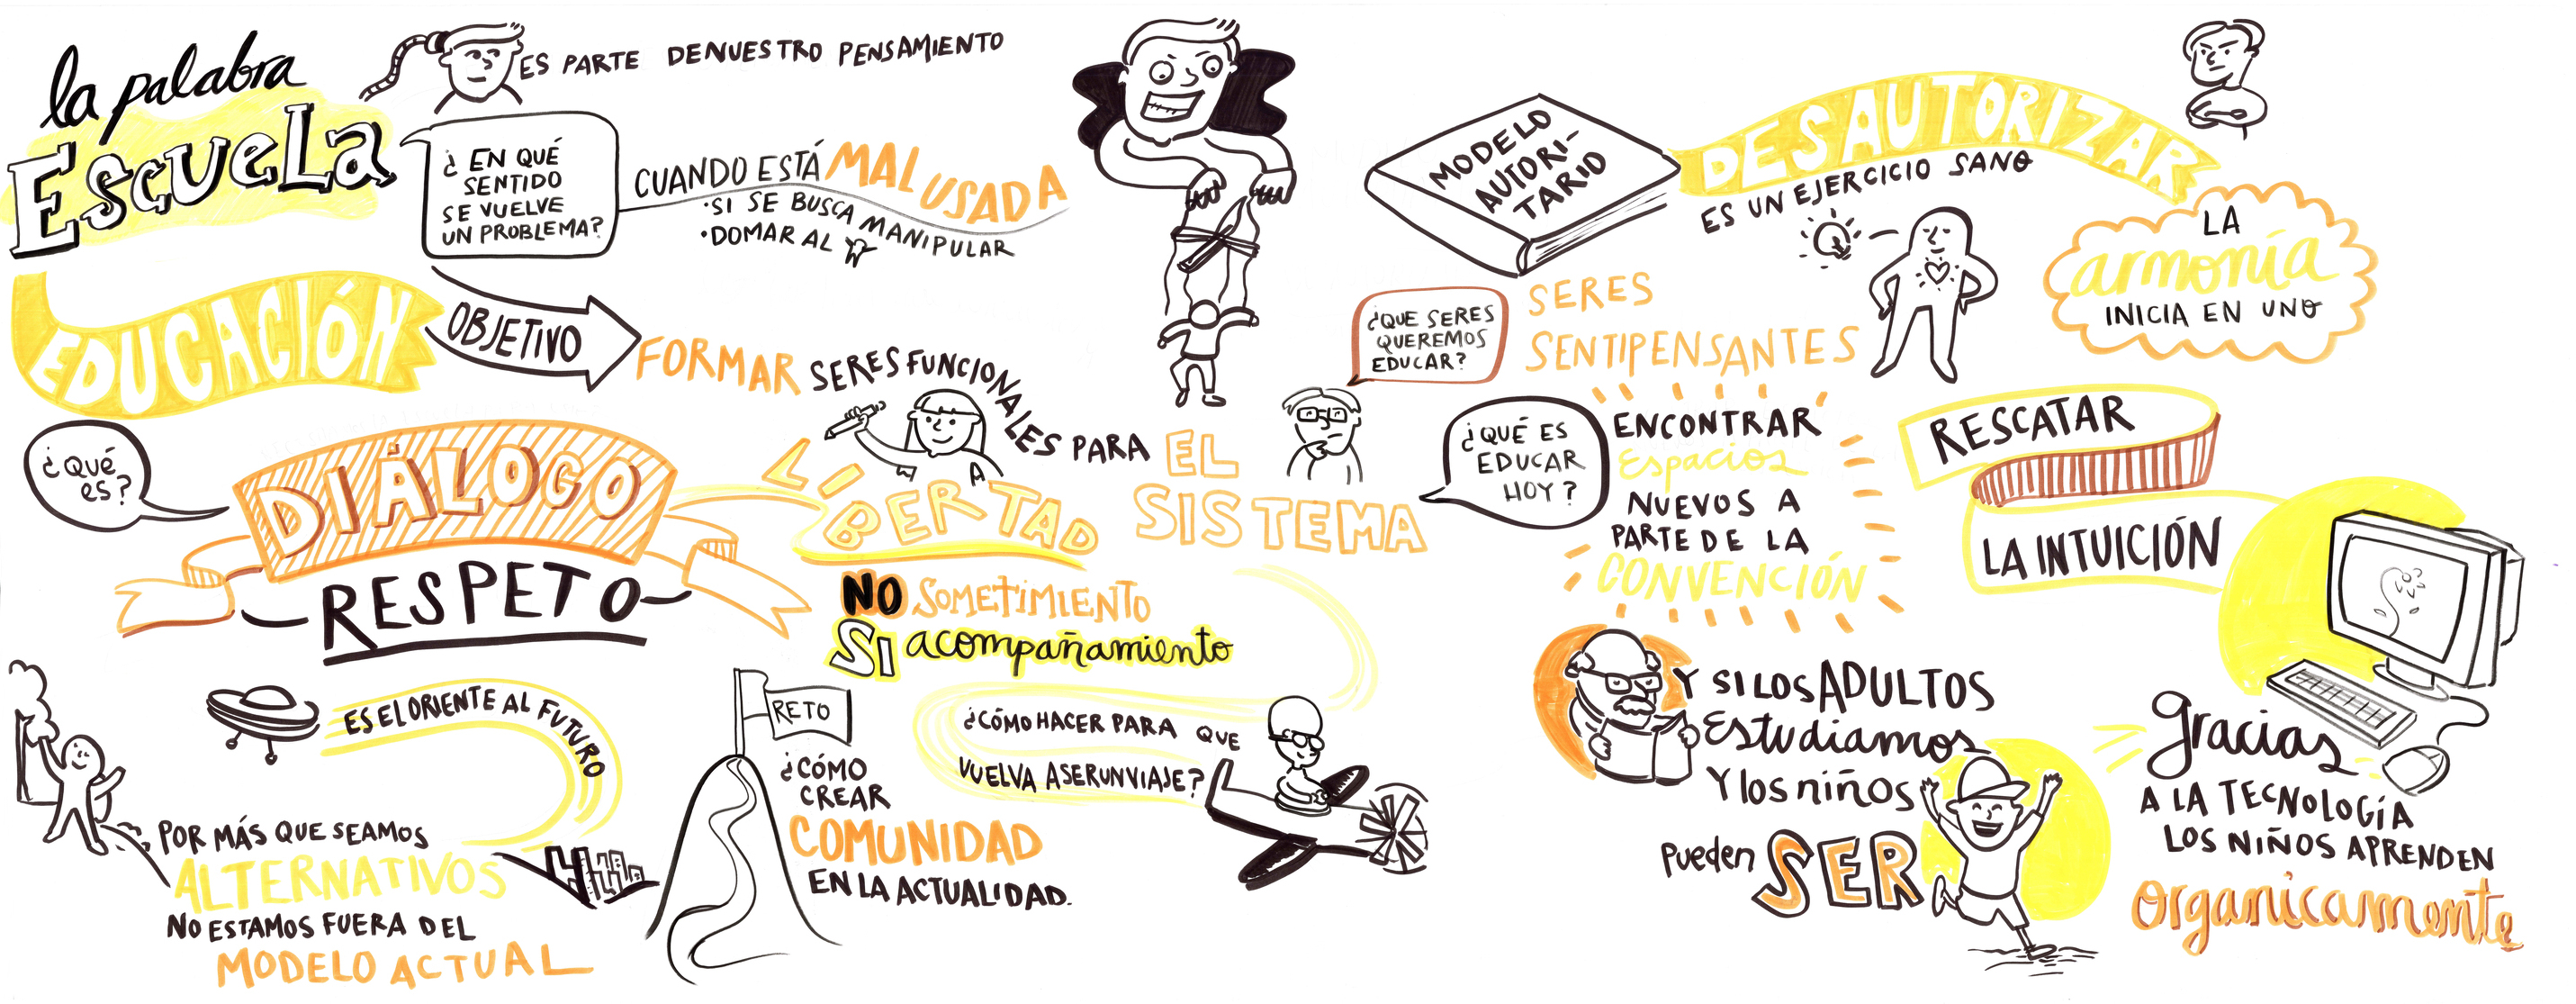 la palabra
ESCUELA
ES PARTE DE NUESTRO PENSAMIENTO
¿EN QUÉ
SENTIDO
SE VUELVE
UN PROBLEMA?
CUANDO ESTÁ MAL USADA
•SI SE BUSCA MANIPULAR
•DOMAR AL
EDUCACIÓN
OBJETIVO
FORMAR SERES FUNCIONALES PARA EL
SISTEMA
¿QUÉ
ES?
DIÁLOGO
RESPETO
LIBERTAD
NO SOMETIMIENTO
SI acompañamiento
ES EL ORIENTE AL FUTURO
POR MÁS QUE SEAMOS
ALTERNATIVOS
NO ESTAMOS FUERA DEL
MODELO ACTUAL
RETO
¿CÓMO
CREAR
COMUNIDAD
EN LA ACTUALIDAD.
¿CÓMO HACER PARA QUE
VUELVA A SER UN VIAJE?
MODELO
AUTORI-
TARIO
DESAUTORIZAR
ES UN EJERCICIO SANO
LA
armonía
INICIA EN UNO
¿QUE SERES
QUEREMOS
EDUCAR?
SERES
SENTIPENSANTES
¿QUÉ ES
EDUCAR
HOY?
ENCONTRAR
Espacios
NUEVOS A
PARTE DE LA
CONVENCIÓN
RESCATAR
LA INTUICIÓN
Y SI LOS ADULTOS
Estudiamos
Y los niños
pueden SER
gracias
A LA TECNOLOGÍA
LOS NIÑOS APRENDEN
organicamente